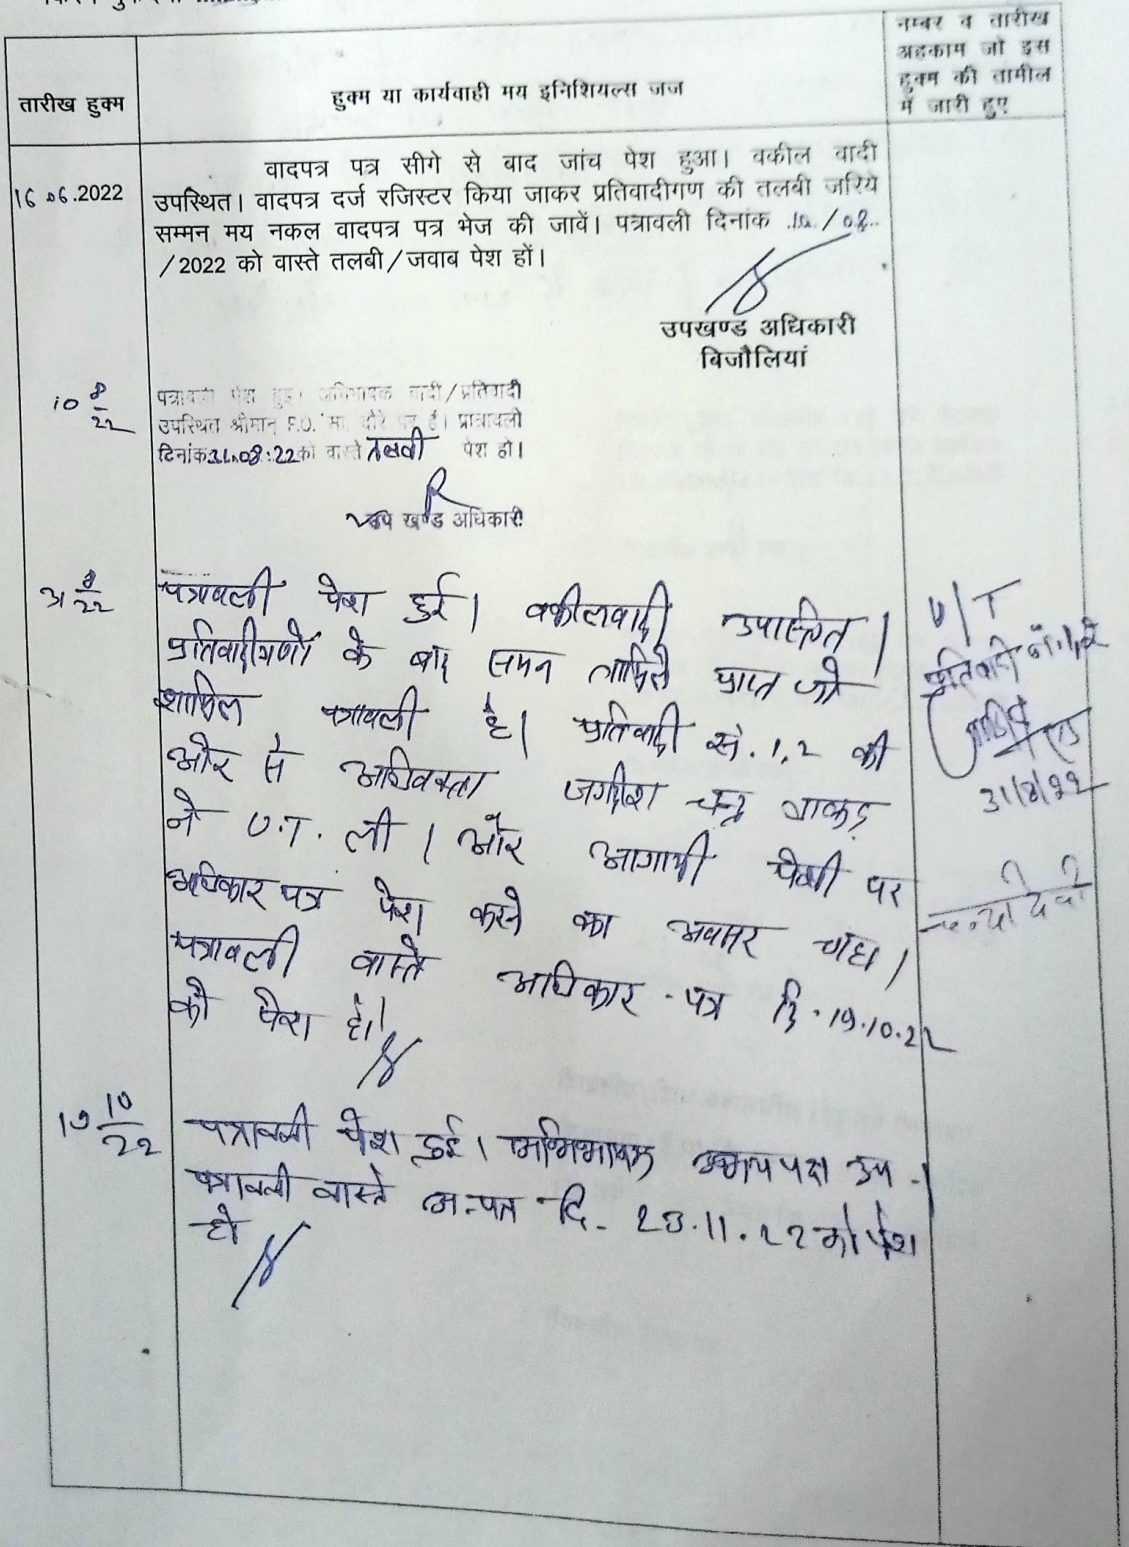 नम्बर व तारीख
अहकाम जो इस
हुक्म की तामील
में जारी हुए
तारीख हुक्म
हुक्म या कार्यवाही मय इनिशियल्स जज
16.06.2022
वादपत्र पत्र सीगे से बाद जांच पेश हुआ। वकील वादी
उपस्थित। वादपत्र दर्ज रजिस्टर किया जाकर प्रतिवादीगण की तलबी जरिये
सम्मन मय नकल वादपत्र पत्र भेज की जावें। पत्रावली दिनांक 10/08
/2022 को वास्ते तलबी/जवाब पेश हों।
उपखण्ड अधिकारी
बिजौलियां
10 8/22
पत्रावली पेश हुई। अभिभाषक वादी/प्रतिवादी
उपस्थित श्रीमान P.O. सा. दौरे पर है। पत्रावली
दिनांक 31.08.22 को वास्ते तलबी पेश हो।
उप खण्ड अधिकारी
31 8/22
पत्रावली पेश हुई। वकील वादी उपस्थित।
प्रतिवादीगणों के बाद समन तामिले प्राप्त जो
शामिल पत्रावली है। प्रतिवादी सं. 1,2 की
ओर से अधिवक्ता जगदीश चन्द्र धाकड़
ने U.T. ली। और आगामी पेशी पर
अधिकार पत्र पेश करने का अवसर चाहा।
पत्रावली वास्ते अधिकार-पत्र दि. 19.10.22
को पेश हो।
U/T
प्रतिवादी नं. 1,2
31/8/22
19 10/22
पत्रावली पेश हुई। अभिभाषक उभयपक्ष उप.।
पत्रावली वास्ते अ.पत्र दि- 23.11.22 को पेश
हो